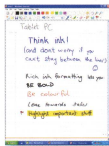 Tablet PC
Think ink!
(and don't worry if you
can't stay between the lines)
Rich ink formatting lets you
BE BOLD
Be colourful
Highlight important stuff